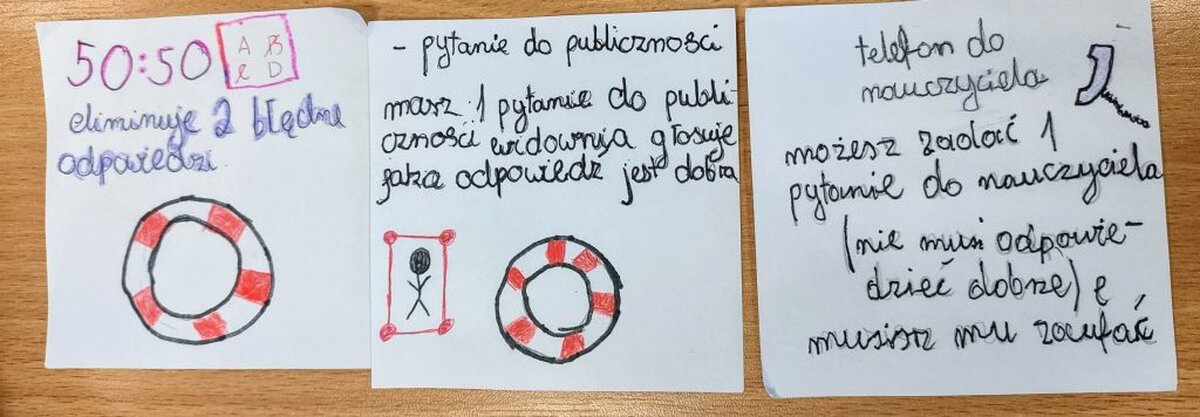 50:50
A B
C D
eliminuje 2 błędne
odpowiedzi.
- pytanie do publiczności
masz 1 pytanie do publi-
czności widownia głosuje
jaka odpowiedź jest dobra
telefon do
nauczyciela
możesz zadać 1
pytanie do nauczyciela
(nie musi odpowie-
dzieć dobrze) ę
musisz mu zaufać